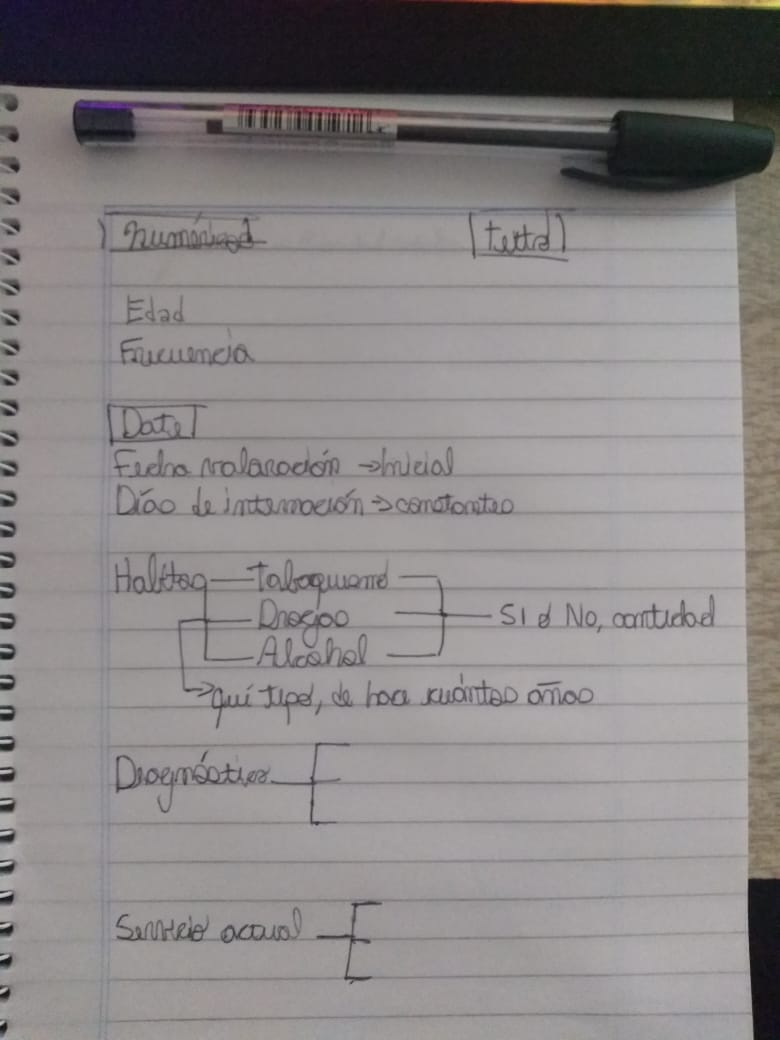 Numérico texto
Edad
Frecuencia
Date
Fecha valoración → Inicial
Días de internación → constantes
Habitos Tabaquismo
Drogas SI o No, cantidad
Alcohol
→ qué tipo, de hace cuántos años
Diagnóstico
Servicio actual